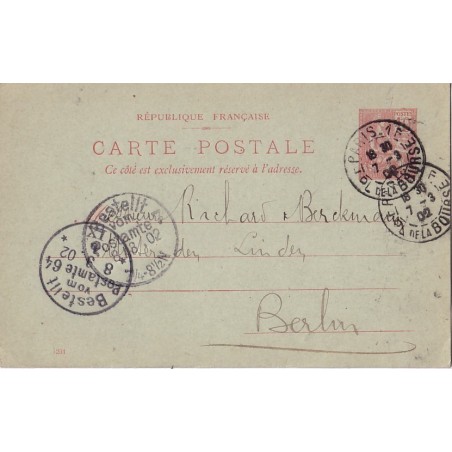 RÉPUBLIQUE FRANÇAISE
CARTE POSTALE
Ce côté est exclusivement réservé à l'adresse.
PARIS
18 30
7 - 3
02
PL. DE LA BOURSE
18 30
7 - 3
02
PL. DE LA BOURSE
Richard
der Linden
Berlin
Bestellt
vom
Postamte
8/3 02
Bestellt
vom
Postamte 64
8 3
02